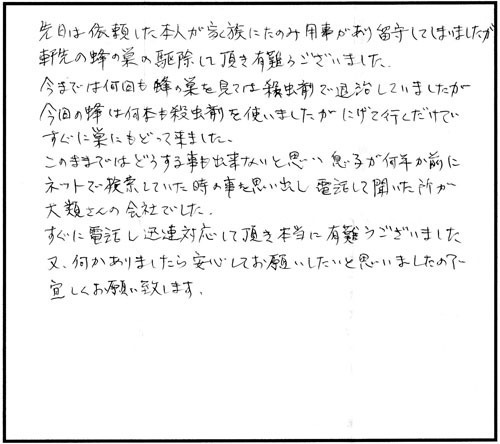 先日は依頼した本人が家族にたのみ用事があり留守してしまいましたが
軒先の蜂の巣の駆除して頂き有難うございました.
今までは何回も蜂の巣を見ては殺虫剤で退治していましたが
今回の蜂は何本も殺虫剤を使いましたがにげて行くだけでい
すぐに巣にもどって来ました.
このままではどうする事も出来ないと思い息子が何年か前に
ネットで検索していた時の事を思い出し電話して聞いた所が
大類さんの会社でした.
すぐに電話し迅速対応して頂き本当に有難うございました
又、何かありましたら安心してお願いしたいと思いましたので
宜しくお願い致します.